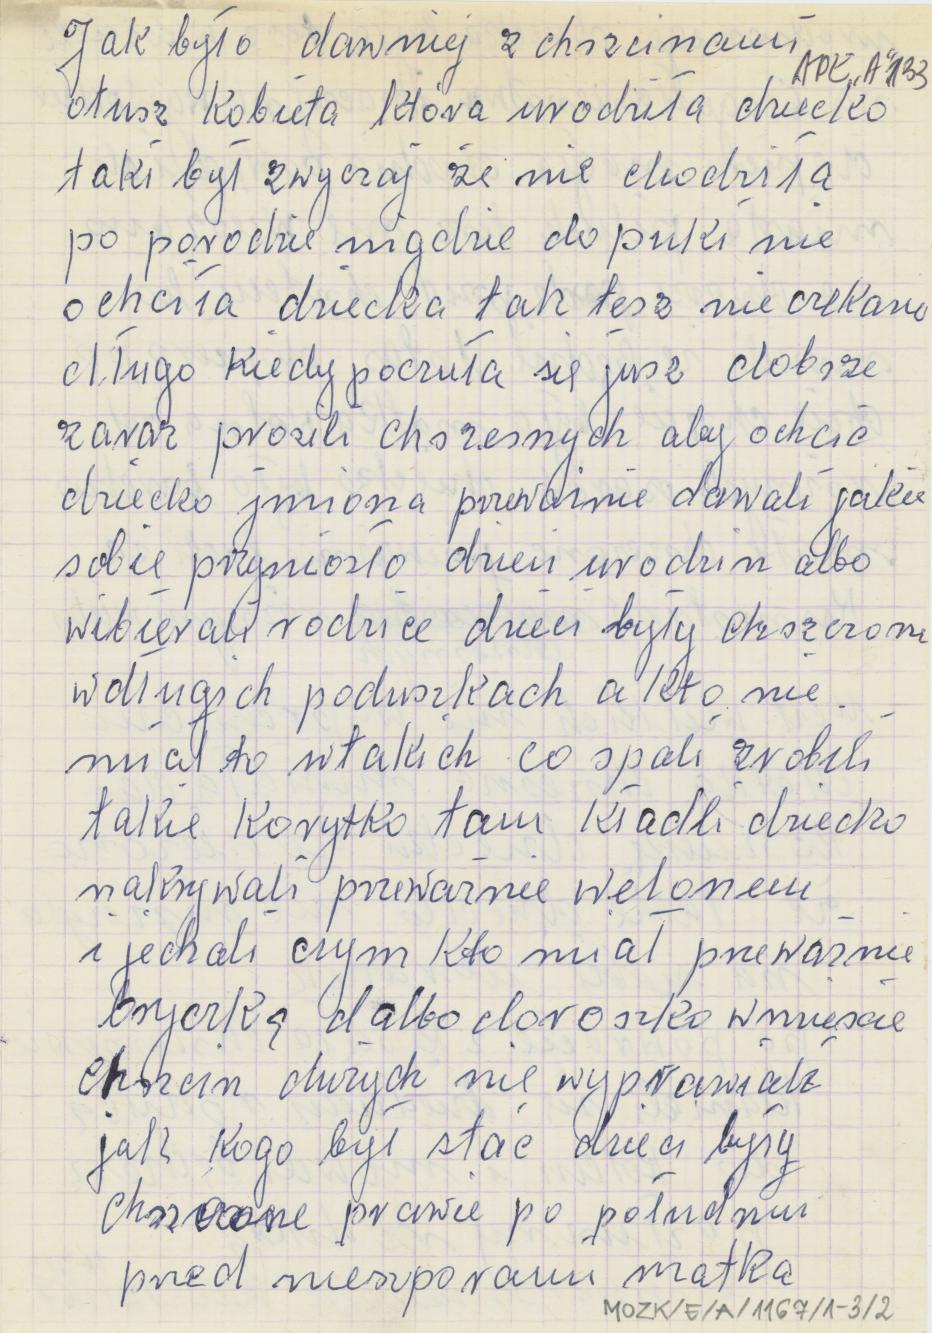 Jak było dawniej z chszcinami
APK „A" 133
otusz kobieta która urodziła dziecko
taki był zwyczaj że nie chodziła
po porodzie nigdzie do puki nie
ochciła dziecka tak tesz nie czekano
długo kiedy poczuła się jusz dobsze
zaraz prosili chszesnych aby ochcić
dziecko jmiona przeważnie dawali jakie
sobie przyniosło dzień urodzin albo
wibierali rodzice dzieci były chszczone
wdługich poduszkach a kto nie
miał to wtakich co spali zrobili
takie korytko tam kładli dziecko
nakrywali przeważnie welonem
i jechali czym kto miał przeważnie
bryczką albo doroszko wmieście
chszcin dużych nie wyprawiali
jak kogo był stać dzieci były
chszczone prawie po południu
przed nieszporami matka
MOZK/E/A/1167/1-3/2